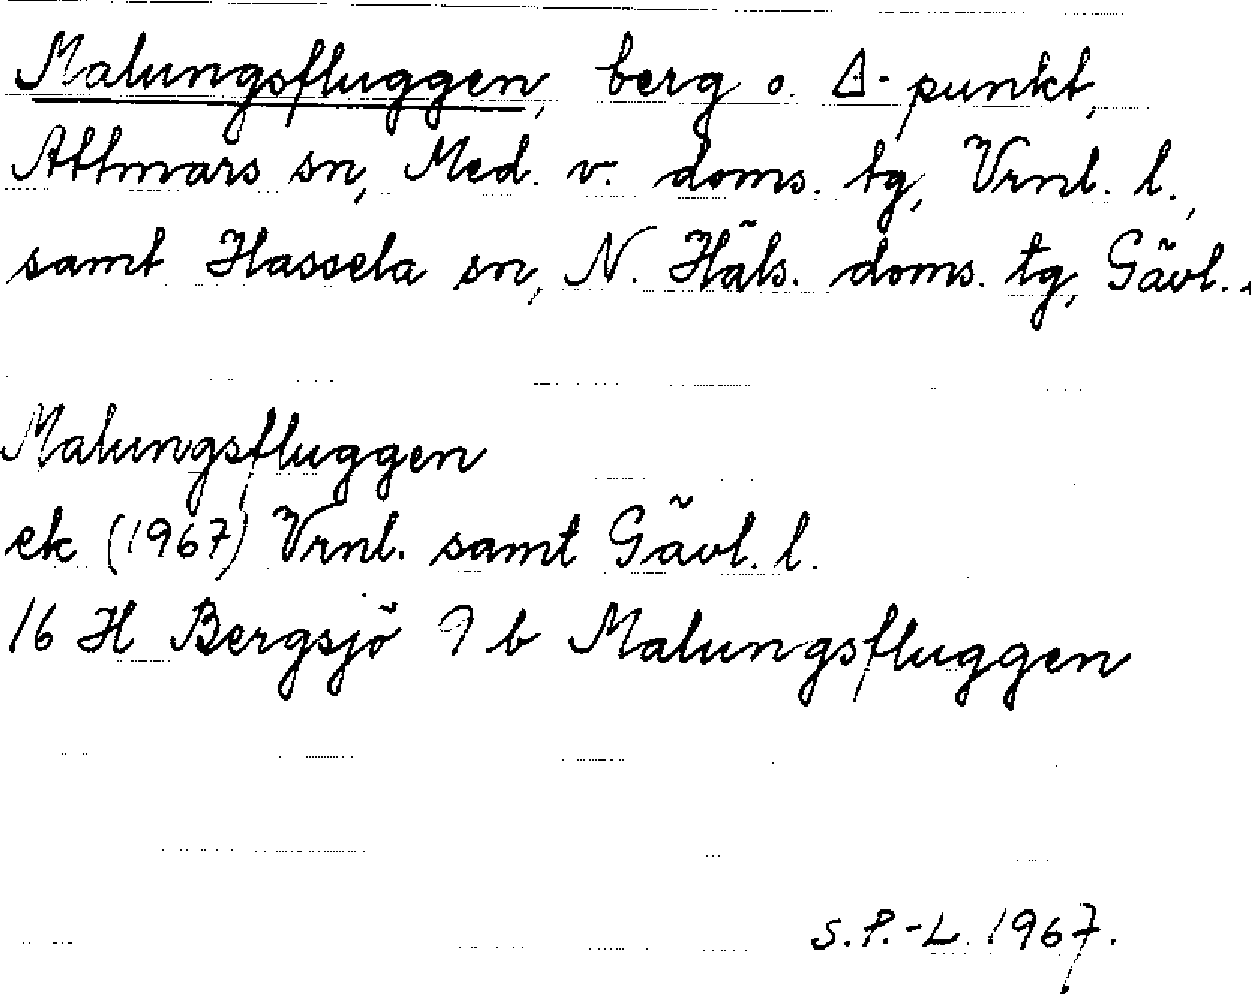 Malungsfluggen, berg o. Δ-punkt,
Attmars sn, Med. v. doms. tg, Vrnl. l.,
samt Hassela sn, N. Häls. doms. tg, Gävl. .
Malungsfluggen
ek (1967) Vrnl. samt Gävl. l.
16 H Bergsjö 9 b Malungsfluggen
S.P.-L. 1967.